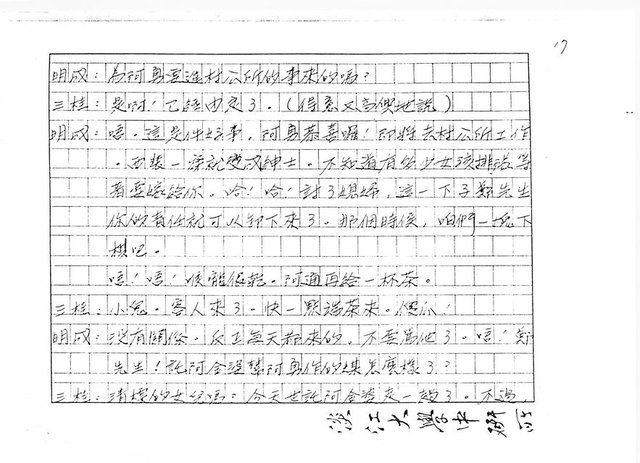 17
明成：為阿勇要進村公所的事來的嗎？
三桂：是啊！已經內定了。（得意又高傲地說）
明成：唔。這是件好事。阿勇恭喜喔！即將去村公所工作
。西裝一穿就變成紳士。不知道有多少女孩排隊等
著要嫁給你。哈！哈！討了媳婦，這一下子鄭先生
你的責任就可以卸下來了。那個時候，咱們一塊下
棋吧。
唔！唔！喉嚨很乾。阿通再給一杯茶。
三桂：小鬼。客人來了。快一點端茶來。傻瓜！
明成：沒有關係。反正每天都來的。不要罵他了。唔！鄭
先生！託阿金婆幫阿勇作的媒怎麼樣了？
三桂：清標的女兒嗎？今天也託阿金婆走一趟了。不過，
淡江大學中研所